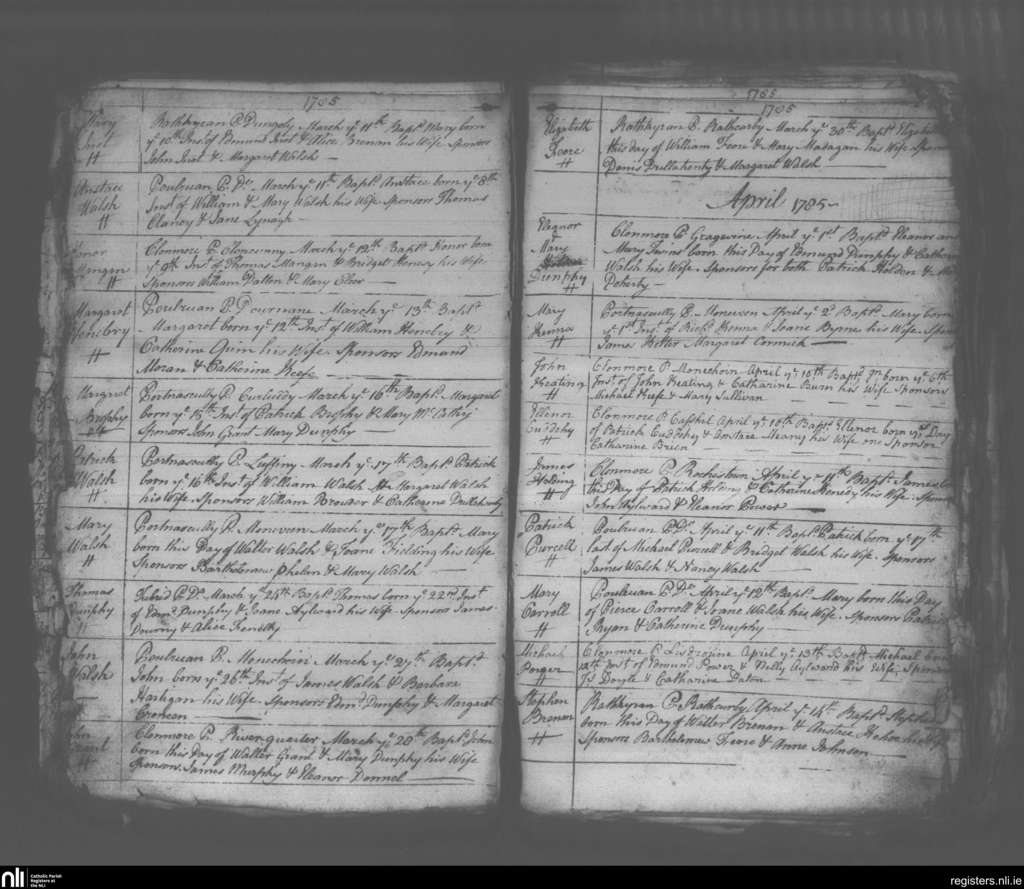 1785
Mary
#
Rathkyran P. Dungoly March ye 11th Bapt. Mary born
ye 10th Inst. of Edmund & Alice Brenan his Wife Sponsors
John & Margaret Welsh
Anstace
Walsh
#
Poulruan P. Do. March ye 11th Bapt. Anstace born ye 8th
Inst. of William & Mary Walsh his Wife Sponsors Thomas
Clancy & Jane Lynagh
Honor
Mangan
#
Clonmore P. March ye 12th Bapt. Honor born
ye 9th Inst. of Thomas Mangan & Bridget his Wife
Sponsors William Dalton & Mary
Margaret
#
Poulruan P. March ye 13th Bapt.
Margaret born ye 12th Inst. of William &
Catherine Quin his Wife Sponsors Edmund
Moran & Catherine Keefe
Margret
Brophy
Portnascully P. March ye 16th Bapt. Margret
born ye 15th Inst. of Patrick Brophy & Mary McCathy
Sponsors John Grant Mary Dunphy
Patrick
Walsh
#
Portnascully P. Luffiny March ye 17th Bapt. Patrick
born ye 16th Inst. of William Walsh & Margaret Walsh
his Wife Sponsors William & Catherine
Mary
Walsh
#
Portnascully P. Moneveen March ye 17th Bapt. Mary
born this Day of Walter Walsh & Joane Fielding his Wife
Sponsors Bartholomew Phelan & Mary Walsh
Thomas
Dunphy
P. Do. March ye 24th Bapt. Thomas born ye 22nd Inst.
of Edmd. Dunphy & Jane Aylward his Wife Sponsors James
Downy & Alice
John
Walsh
Poulruan P. Monechoin March ye 27th Bapt.
John born ye 26th Inst. of James Walsh & Barbara
Hartigan his Wife Sponsors Edmd. Dunphy & Margaret
John
Grant
#
Clonmore P. Riverquarter March ye 20th Bapt. John
born this Day of Walter Grant & Mary Dunphy his Wife
Sponsors James Murphy & Eleanor Donnel
1785
1785
Elizabeth
#
Rathkyran P. Rathcurby March ye 30th Bapt. Elizabeth
this day of William & Mary Madagan his Wife
Denis Dullahonty & Margaret Walsh
April 1785
Eleanor
&
Mary
Dunphy
#
Clonmore P. Gragevine April ye 1st Bapt. Eleanor and
Mary Twins born this Day of Edmund Dunphy & Catharine
Walsh his Wife Sponsors for both Patrick Holden &
Doherty
Mary
Kenna
#
Portnascully P. Moneveen April ye 2d Bapt. Mary born
ye 1st Inst. of Richd. Kenna & Joane Byrne his Wife
James Margaret Cormick
John
Keating
#
Clonmore P. Monechoin April ye 10th Bapt. Jn born ye 6th
Inst. of John Keating & Catharine Burn his Wife Sponsors
Michael Keefe & Mary Sullivan
Ellinor
Cuddehy
#
Clonmore P. Cashel April ye 10th Bapt. Elenor born ye Day
of Patrick Cuddehy & Anstace Neary his Wife one Sponsor
Catharine Brien
James
Holding
#
Clonmore P. Rochestown April ye 11th Bapt. James
this Day of Patrick Holding & Catherine his Wife
John Aylward & Eleanor Power
Patrick
Purcell
#
Poulruan P. Do. April ye 11th Bapt. Patrick born ye 17th
last of Michael Purcell & Bridget Walsh his Wife Sponsors
James Walsh & Nancy Walsh
Mary
Carroll
#
Poulruan P. Do. April ye 12th Bapt. Mary born this Day
of Pierce Carroll & Joane Walsh his Wife Sponsors
Ryan & Catherine Dunphy
Michael
Power
#
Clonmore P. April ye 13th Bapt. Michael born
12th Inst. of Edmund Power & Nelly Aylward his Wife
Js Doyle & Catharine
Stephen
Brenan
#
Rathkyran P. Rathcurby April ye 14th Bapt. Stephen
born this Day of Walter Brenan & Anstace his Wife
Sponsors Bartholomew & Anne Johnson
nli
Catholic Parish
Registers at
the NLI
registers.nli.ie